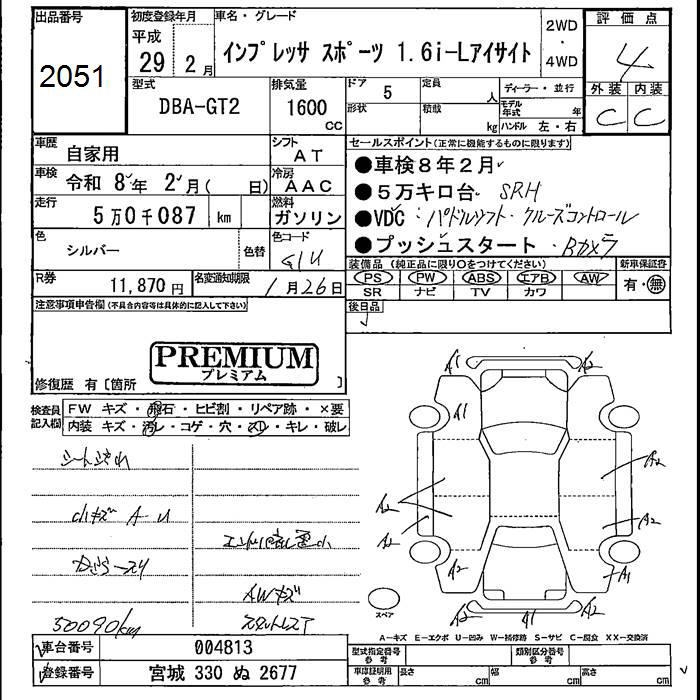 出品番号 初度登録年月 車名・グレード 評価点
2051
平成 29 2月
インプレッサ スポーツ 1.6i-Lアイサイト
2WD・4WD
4
外装 内装
C C
型式 排気量 ドア 定員 ディーラー・並行
DBA-GT2 1600 CC 5 人
形状 積載 kg モデル年式 年 ハンドル 左・右
車歴 自家用 シフト AT
車検 令和 8年 2月( 日) 冷房 AAC
走行 5万0千087 km 燃料 ガソリン
色 シルバー 色替 色コード G1U
R券 11,870円 名変通知期限 1月26日
セールスポイント(正常に機能するものに限ります)
●車検8年2月
●5万キロ台 SRH
●VDC・パドルシフト・クルーズコントロール
●プッシュスタート・Bカメラ
装備品(純正品に限り○をつけてください) 新車保証書
PS PW ABS エアB AW 有・無
SR ナビ TV カワ
後日品
注意事項申告欄(不具合内容等は具体的に記入して下さい)
PREMIUM
プレミアム
修復歴 有〔箇所 〕
検査員記入欄
FW キズ・飛石・ヒビ割・リペア跡・×要
内装 キズ・汚レ・コゲ・穴・スレ・キレ・破レ
シート汚れ
小キズ A-U
AWキズ
スタットレスT
50090km
A1 A2
A1
A2
A2
A2
A2
A2 A2 A1
A2 A1 A2
スペア
A-キズ E-エクボ U-凹み W-補修跡 S-サビ C-腐食 XX-交換済
車台番号 004813
登録番号 宮城 330 ぬ 2677
型式指定番号 参考 類別区分番号 参考
車庫証明用 参考 長さ cm 幅 cm 高さ cm